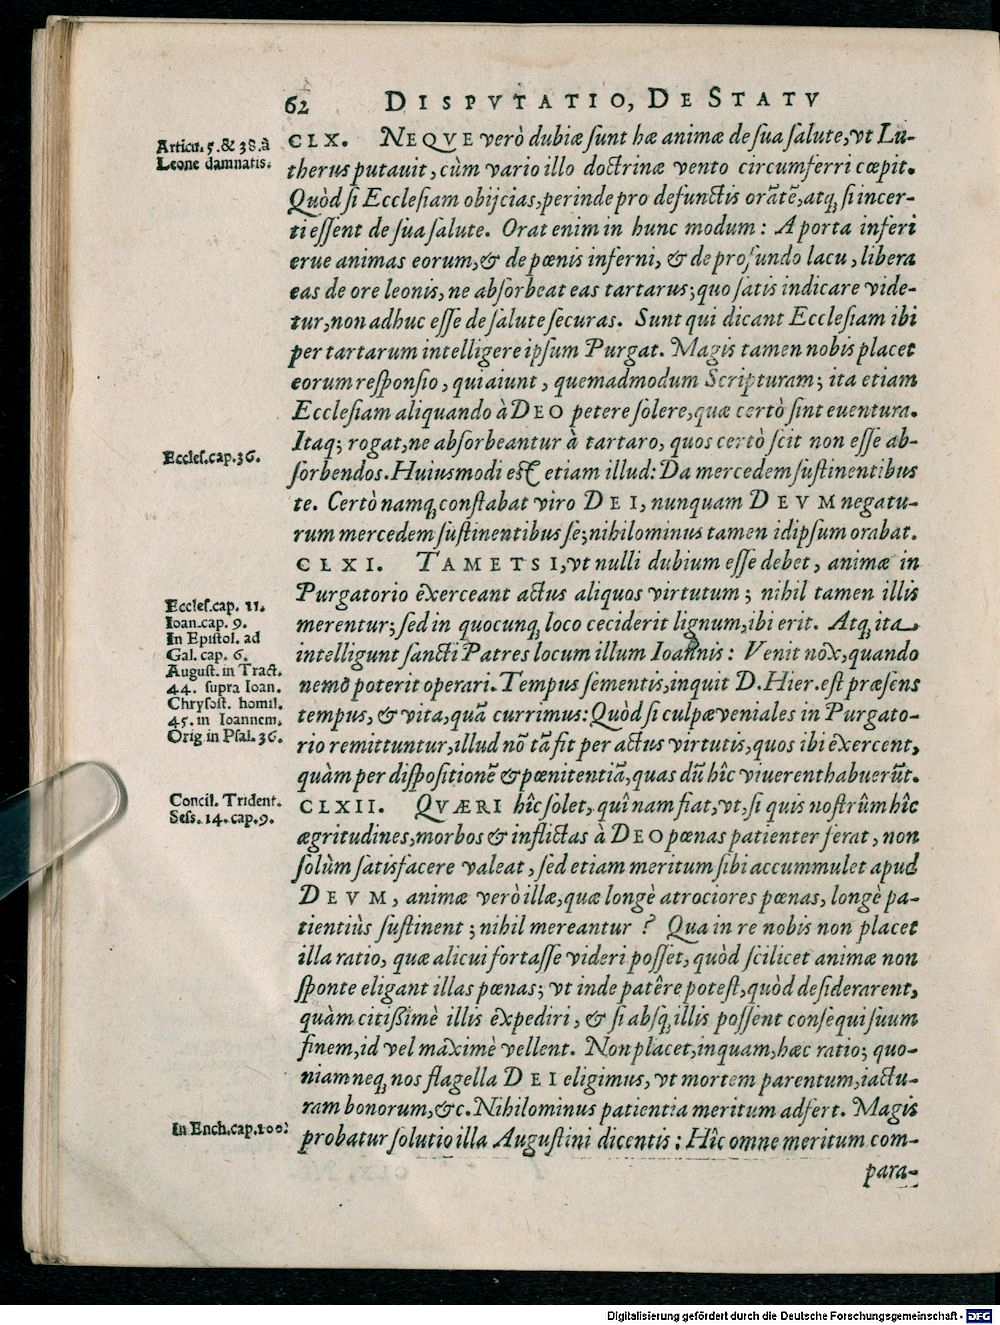 62 DISPVTATIO, DE STATV
Articu. 5. & 38. à
Leone damnatis.
CLX. NEQVE verò dubiæ sunt hæ animæ de sua salute, vt Lu-
therus putauit, cùm vario illo doctrinæ vento circumferri cœpit.
Quòd si Ecclesiam obijcias, perinde pro defunctis orãtẽ, atq; si incer-
ti essent de sua salute. Orat enim in hunc modum: A porta inferi
erue animas eorum, & de pœnis inferni, & de profundo lacu, libera
eas de ore leonis, ne absorbeat eas tartarus; quo satis indicare vide-
tur, non adhuc esse de salute securas. Sunt qui dicant Ecclesiam ibi
per tartarum intelligere ipsum Purgat. Magis tamen nobis placet
eorum responsio, qui aiunt, quemadmodum Scripturam; ita etiam
Ecclesiam aliquando à DEO petere solere, quæ certò sint euentura.
Itaq; rogat, ne absorbeantur à tartaro, quos certò scit non esse ab-
Eccles. cap. 36.
sorbendos. Huiusmodi est etiam illud: Da mercedem sustinentibus
te. Certò namq; constabat viro DEI, nunquam DEVM negatu-
rum mercedem sustinentibus se; nihilominus tamen id ipsum orabat.
CLXI. TAMETSI, vt nulli dubium esse debet, animæ in
Purgatorio exerceant actus aliquos virtutum; nihil tamen illis
Eccles. cap. 11.
Ioan. cap. 9.
In Epistol. ad
Gal. cap. 6.
August. in Tract.
44. supra Ioan.
Chrysost. homil.
45. in Ioannem.
Orig. in Psal. 36.
merentur; sed in quocunq; loco ceciderit lignum, ibi erit. Atq; ita
intelligunt sancti Patres locum illum Ioannis: Venit nox, quando
nemo poterit operari. Tempus sementis, inquit D. Hier. est præsens
tempus, & vita, quã currimus: Quòd si culpæ veniales in Purgato-
rio remittuntur, illud nõ tã fit per actus virtutis, quos ibi exercent,
quàm per dispositionẽ & pœnitentiã, quas dũ hîc viuerent habuerũt.
Concil. Trident.
Sess. 14. cap. 9.
CLXII. QVÆRI hîc solet, quî nam fiat, vt, si quis nostrûm hîc
ægritudines, morbos & inflictas à DEO pœnas patienter ferat, non
solùm satisfacere valeat, sed etiam meritum sibi accummulet apud
DEVM, animæ verò illæ, quæ longè atrociores pœnas, longè pa-
tientiùs sustinent; nihil mereantur? Qua in re nobis non placet
illa ratio, quæ alicui fortasse videri posset, quòd scilicet animæ non
sponte eligant illas pœnas; vt inde patêre potest, quòd desiderarent,
quàm citißimè illis expediri, & si absq; illis possent consequi suum
finem, id vel maximè vellent. Non placet, inquam, hæc ratio; quo-
niam neq; nos flagella DEI eligimus, vt mortem parentum, iactu-
ram bonorum, &c. Nihilominus patientia meritum adfert. Magis
In Ench. cap. 100.
probatur solutio illa Augustini dicentis: Hîc omne meritum com-
para-
Digitalisierung gefördert durch die Deutsche Forschungsgemeinschaft - DFG